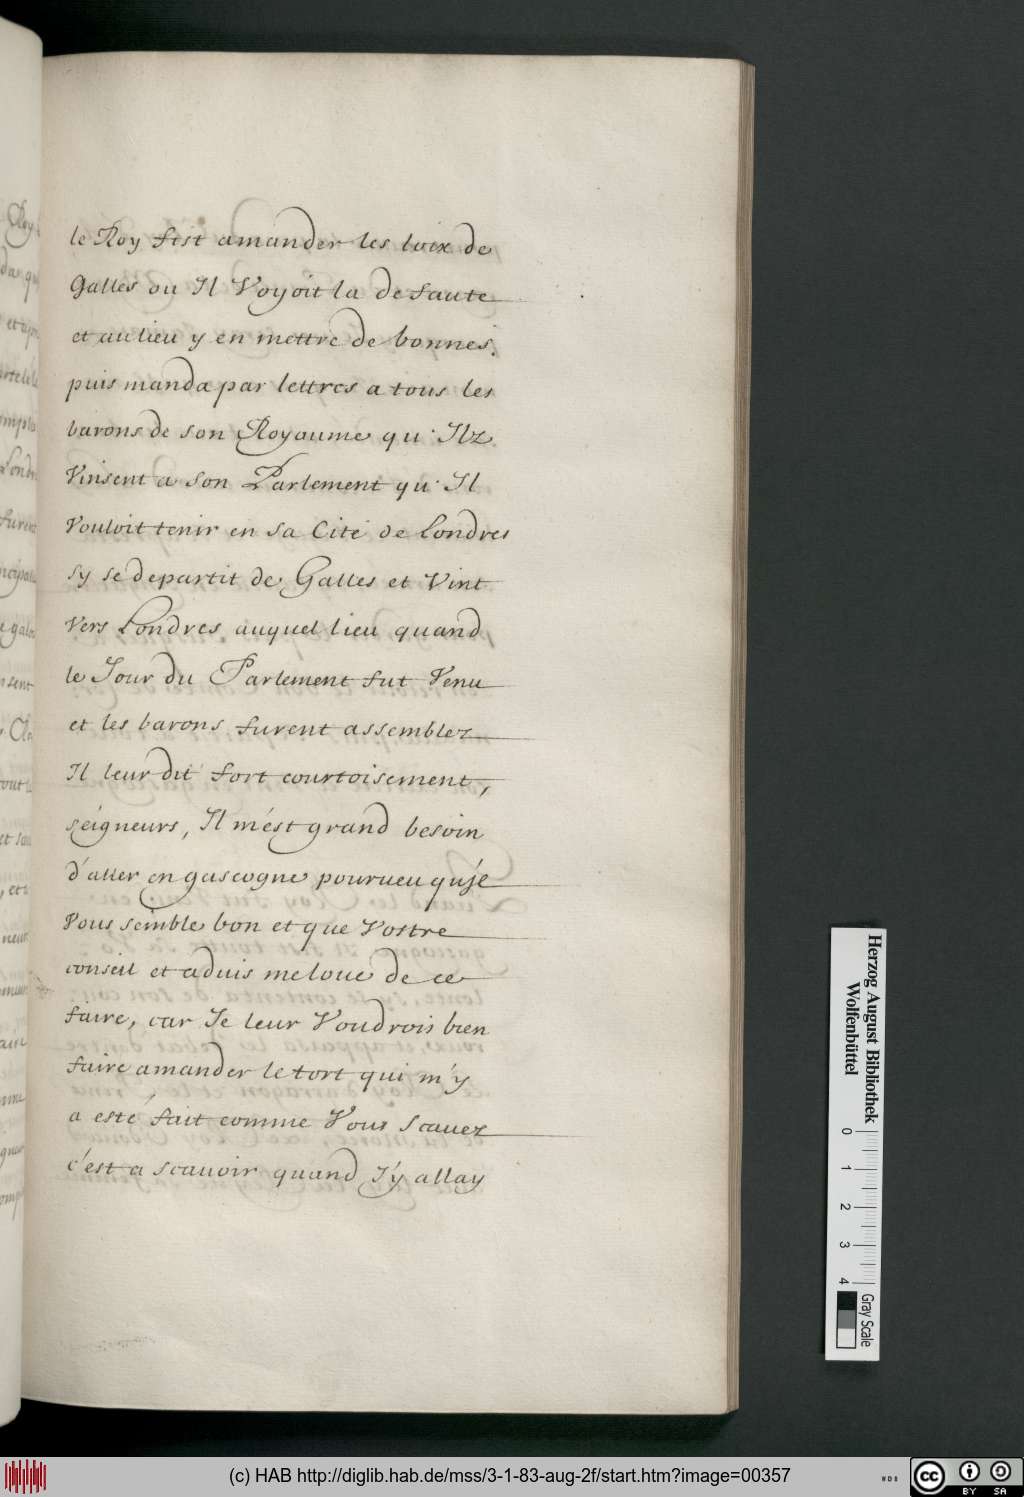 le Roy fist amander les loix de
Galles ou Il Voyoit la defaute
et au lieu y en mettre de bonnes.
puis manda par lettres a tous les
barons de son Royaume qu'Ilz
Vinsent a son Parlement qu'Il
Vouloit tenir en sa Cité de Londres
sy se departit de Galles et Vint
Vers Londres auquel lieu quand
le Jour du Parlement fut Venu
et les barons furent assemblez
Il leur dit fort courtoisement,
seigneurs, Il m'est grand besoin
d'aller en gascogne pourueu qu'je
Vous semble bon et que Vostre
conseil et aduis me loue de ce
faire, car Je leur Voudrois bien
faire amander le tort qui m'y
a esté fait comme Vous scauez
c'est a scauoir quand J'y allay
Herzog August Bibliothek
Wolfenbüttel
0 1 2 3 4
Gray Scale
(c) HAB http://diglib.hab.de/mss/3-1-83-aug-2f/start.htm?image=00357
cc BY SA